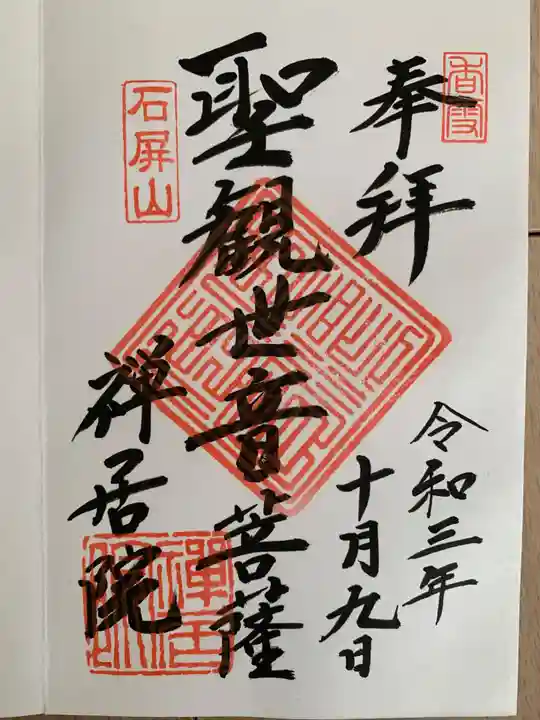 香雪
奉拝
令和三年
十月九日
聖観世音菩薩
石屏山
禅居院
禅居院